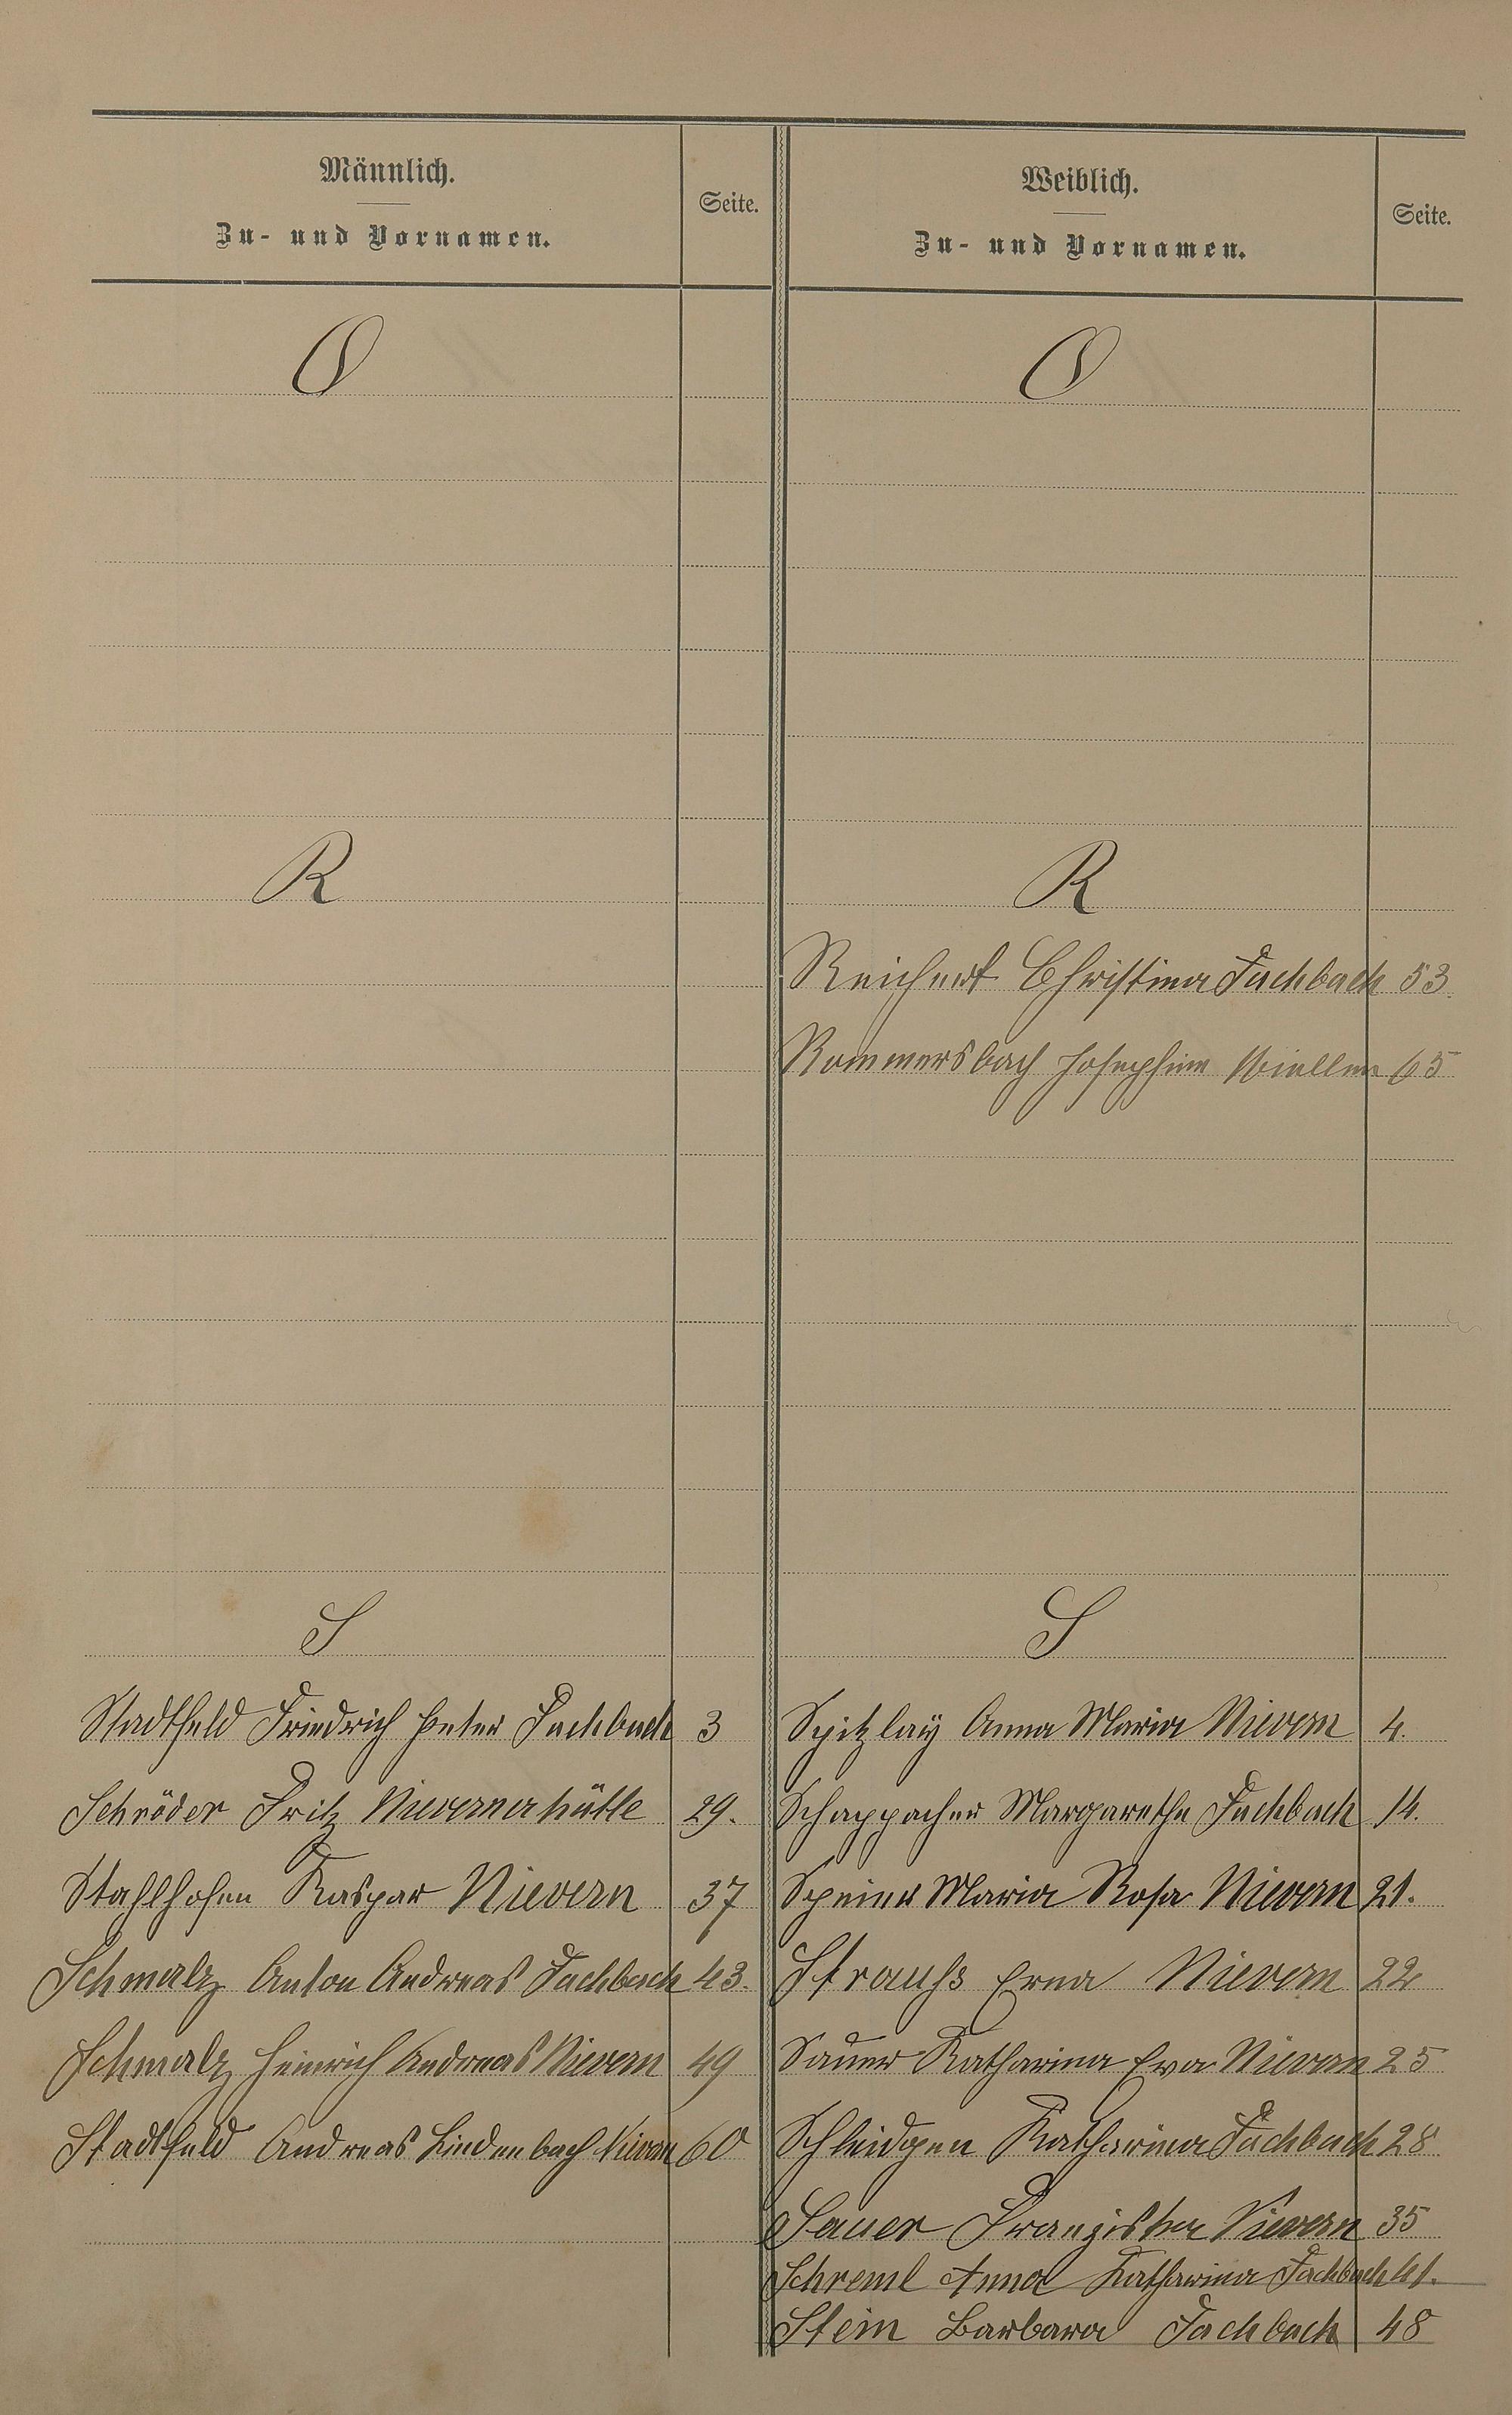 Männlich.
Zu- und Vornamen.
Seite.
Weiblich.
Zu- und Vornamen.
Seite.
O
O
R
R
Reichert Christina Fachbach 53.
Rommersbach Josephine Miellen 65
S
S
Stadtfeld Friedrich Peter Fachbach 3
Schröder Fritz Nievernerhütte 29.
Stahlhofen Kaspar Nievern 37
Schmalz Anton Andreas Fachbach 43.
Schmalz Heinrich Andreas Nievern 49
Stadtfeld Andreas Lindenbach Nievern 60
Spitzlay Anna Maria Nievern 4.
Schappacher Margarethe Fachbach 14.
Speier Maria Rosa Nievern 21.
Strauß Erna Nievern 22
Sauer Katharina Eva Nievern 25
Schleidgen Katharina Fachbach 28
Sauer Franziska Nievern 35
Schreml Anna Katharina Fachbach 41.
Stein Barbara Fachbach 48